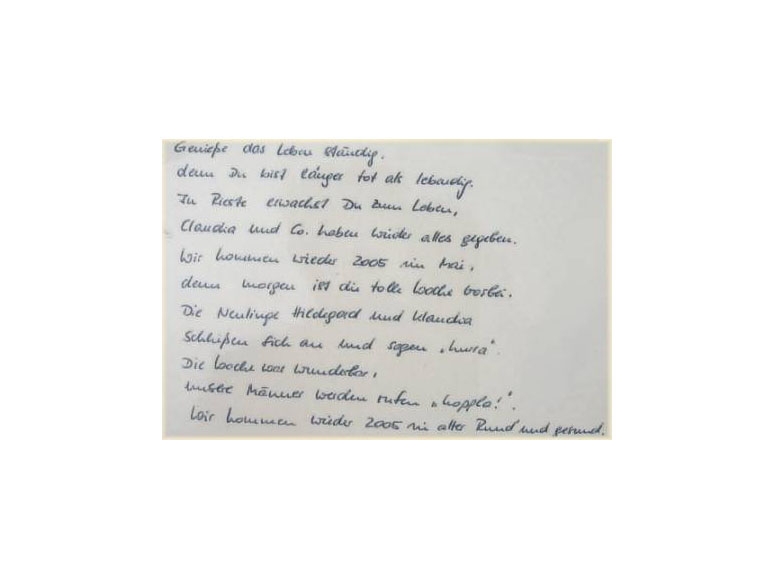 Genieße das Leben ständig,
denn Du bist länger tot als lebendig.
In Rieste erwachst Du zum Leben,
Claudia und Co. haben wieder alles gegeben.
Wir kommen wieder 2005 im Mai,
denn morgen ist die tolle Woche vorbei.
Die Neulinge Hildegard und Klaudia
schließen sich an und sagen „hurra“.
Die Woche war wunderbar,
unsere Männer werden rufen „hoppla!“.
Wir kommen wieder 2005 in alter Rund und gesund.